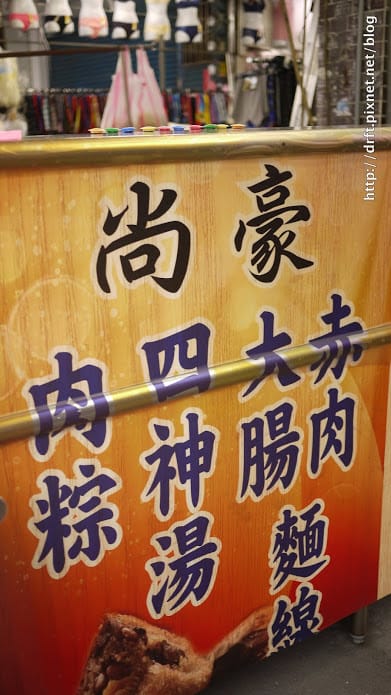 尚豪
赤肉
大腸
麵線
四神湯
肉粽
http://drft.pixnet.net/blog